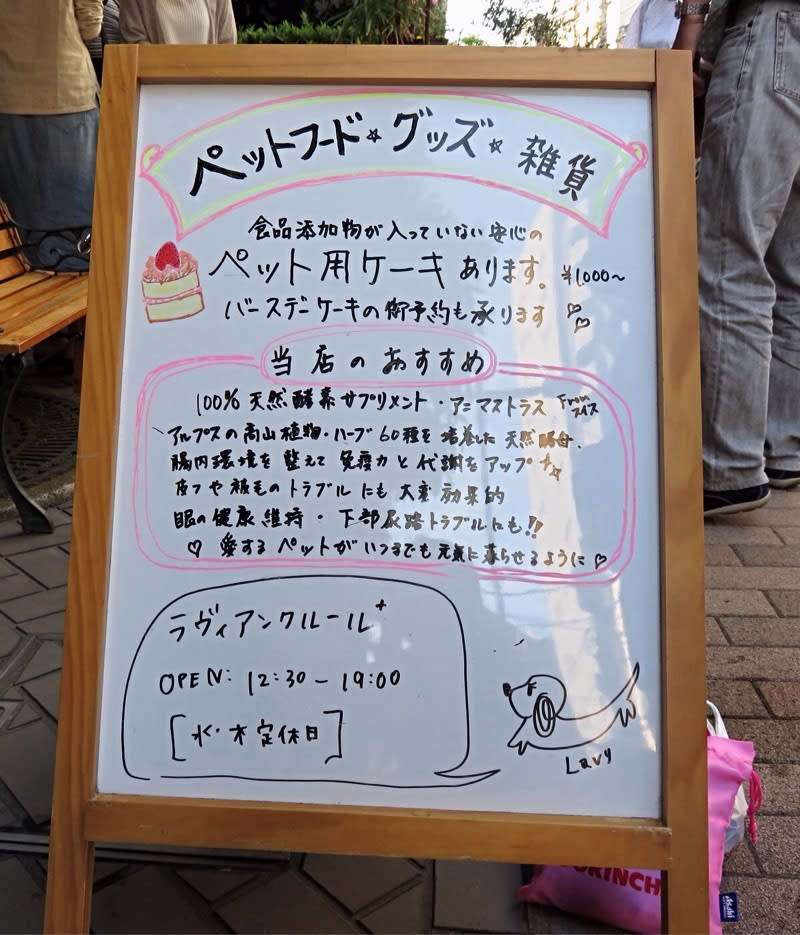 ペットフード☆グッズ☆雑貨
食品添加物が入っていない安心の
ペット用ケーキあります。 ¥1,000〜
バースデーケーキの御予約も承ります♡♡
当店のおすすめ
100%天然酵素サプリメント・アニマストラス Fromスイス
アルプスの高山植物・ハーブ60種を培養した天然酵母、
腸内環境を整えて免疫力と代謝をアップ☆
皮フや被毛のトラブルにも大変効果的
眼の健康維持・下部尿路トラブルにも!!
♡愛するペットがいつまでも元気に暮らせるように♡
ラヴィアンクルール+
OPEN: 12:30-19:00
[水・木定休日]
Lavy
Asahi